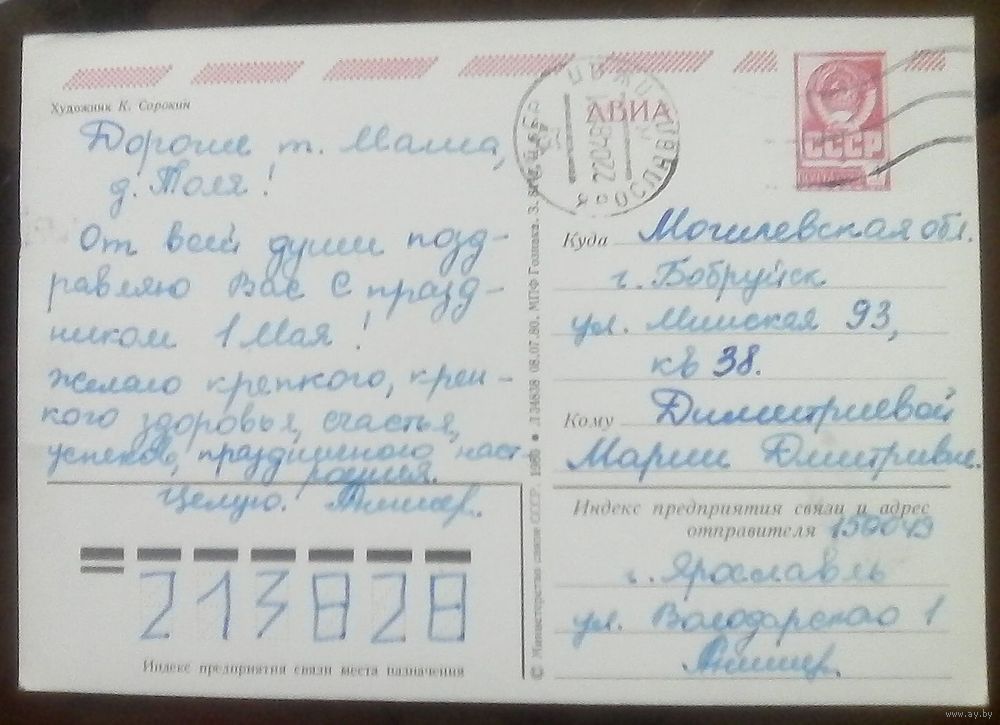 Художник К. Сорокин
АВИА
СССР
Дорогие т. Маша,
д. Толя!
От всей души позд-
равляю Вас с празд-
ником 1 Мая!
Желаю крепкого, креп-
кого здоровья, счастья,
успехов, праздничного наст
роения.
Целую.
Куда Могилевская обл.
г. Бобруйск
ул. Минская 93,
кв 38.
Кому Димитриевой
Марии Дмитриевне.
Индекс предприятия связи и адрес
отправителя 150049
г. Ярославль
ул. Володарского 1
213828
Индекс предприятия связи места назначения
© Министерство связи СССР. 1980 ● 08.07.80. МПФ Гознака.
www.ay.by